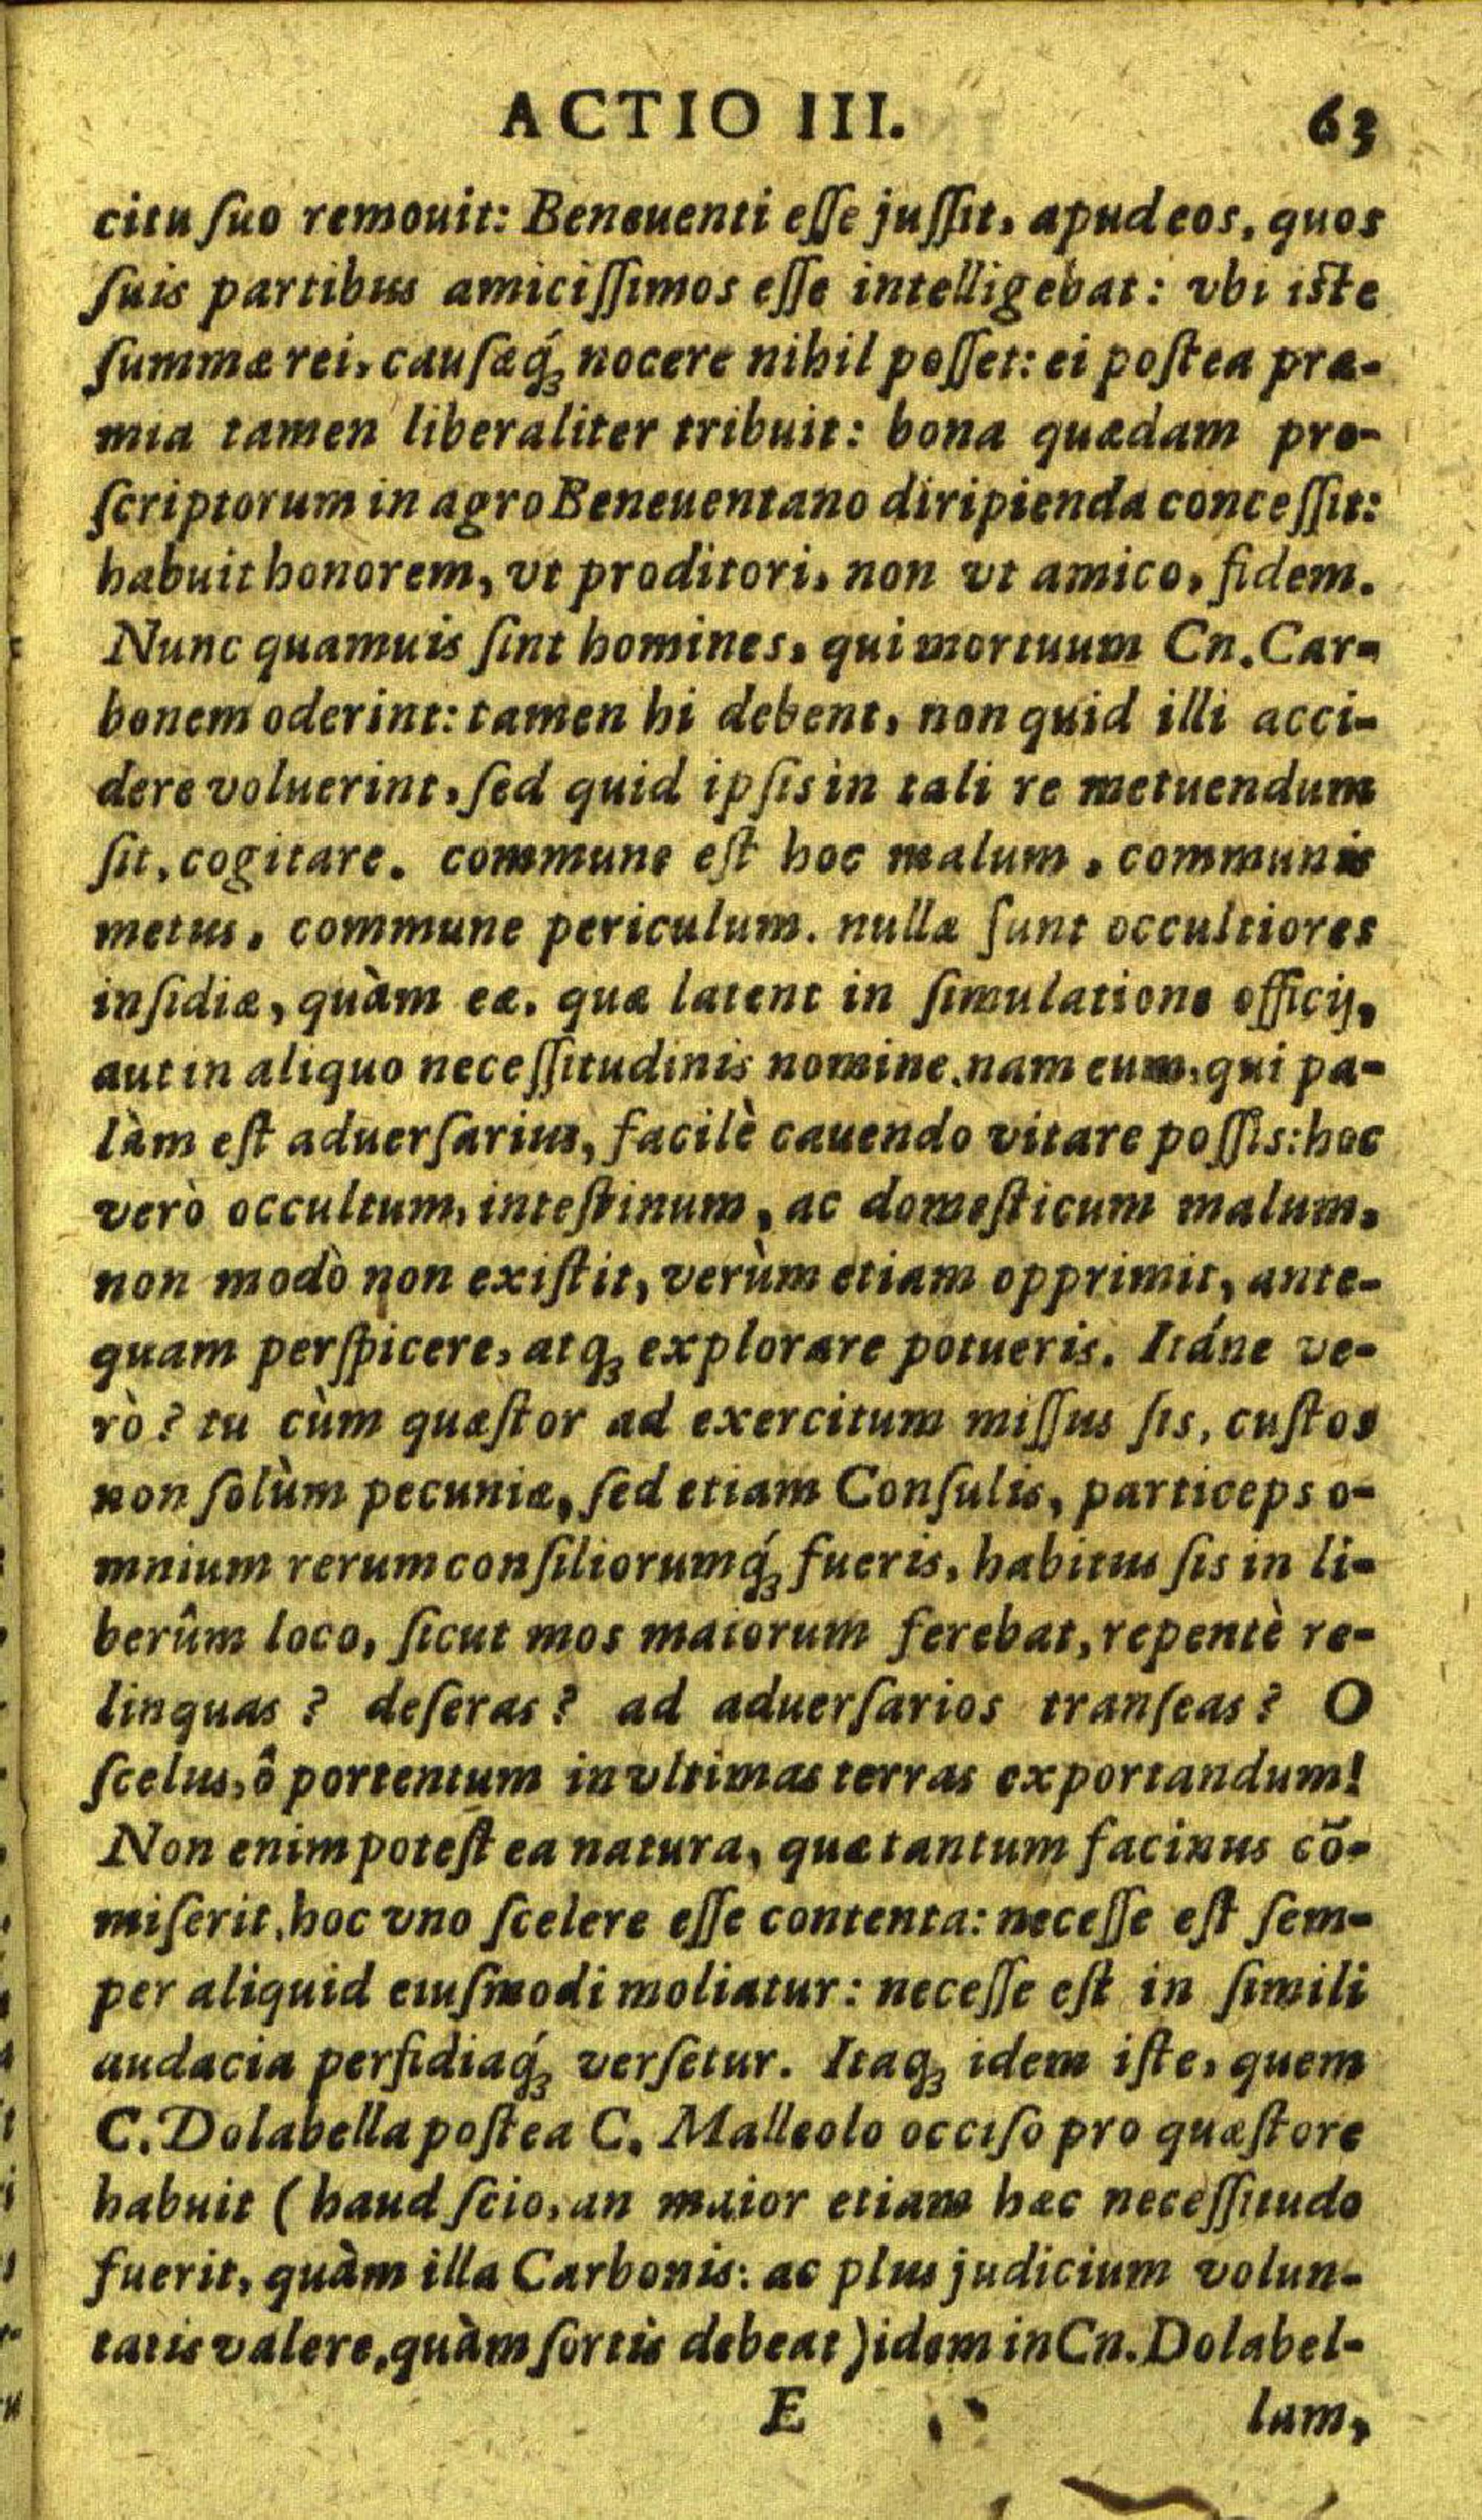 ACTIO III. 63
citu ſuo remouit: Beneuenti eſſe juſſit, apud eos, quos
ſuis partibus amiciſſimos eſſe intelligebat: vbi iſte
ſummæ rei, cauſæq́; nocere nihil poſſet: ei poſtea præ-
mia tamen liberaliter tribuit: bona quædam pro-
ſcriptorum in agro Beneuentano diripienda conceſſit:
habuit honorem, vt proditori, non vt amico, fidem.
Nunc quamuis ſint homines, qui mortuum Cn. Car-
bonem oderint: tamen hi debent, non quid illi acci-
dere voluerint, ſed quid ipſis in tali re metuendum
ſit, cogitare. commune eſt hoc malum, communis
metus, commune periculum. nullæ ſunt occultiores
inſidiæ, quàm eæ, quæ latent in ſimulatione officij,
aut in aliquo neceſſitudinis nomine. nam eum, qui pa-
làm eſt aduerſarius, facilè cauendo vitare poſſis: hoc
verò occultum, inteſtinum, ac domeſticum malum,
non modò non exiſtit, verùm etiam opprimit, ante-
quam perſpicere, atq; explorare potueris. Itáne ve-
rò? tu cùm quæſtor ad exercitum miſſus ſis, cuſtos
non ſolùm pecuniæ, ſed etiam Conſulis, particeps o-
mnium rerum conſiliorumq́; fueris, habitus ſis in li-
berûm loco, ſicut mos maiorum ferebat, repentè re-
linquas? deſeras? ad aduerſarios tranſeas? O
ſcelus, ô portentum in vltimas terras exportandum!
Non enim poteſt ea natura, quæ tantum facinus cō-
miſerit, hoc vno ſcelere eſſe contenta: neceſſe eſt ſem-
per aliquid eiuſmodi moliatur: neceſſe eſt in ſimili
audacia perfidiaq́; verſetur. Itaq; idem iſte, quem
C. Dolabella poſtea C. Malleolo occiſo pro quæſtore
habuit (haud ſcio, an maior etiam hæc neceſſitudo
fuerit, quàm illa Carbonis: ac plus judicium volun-
tatis valere, quàm ſortis debeat) idem in Cn. Dolabel-
E lam,